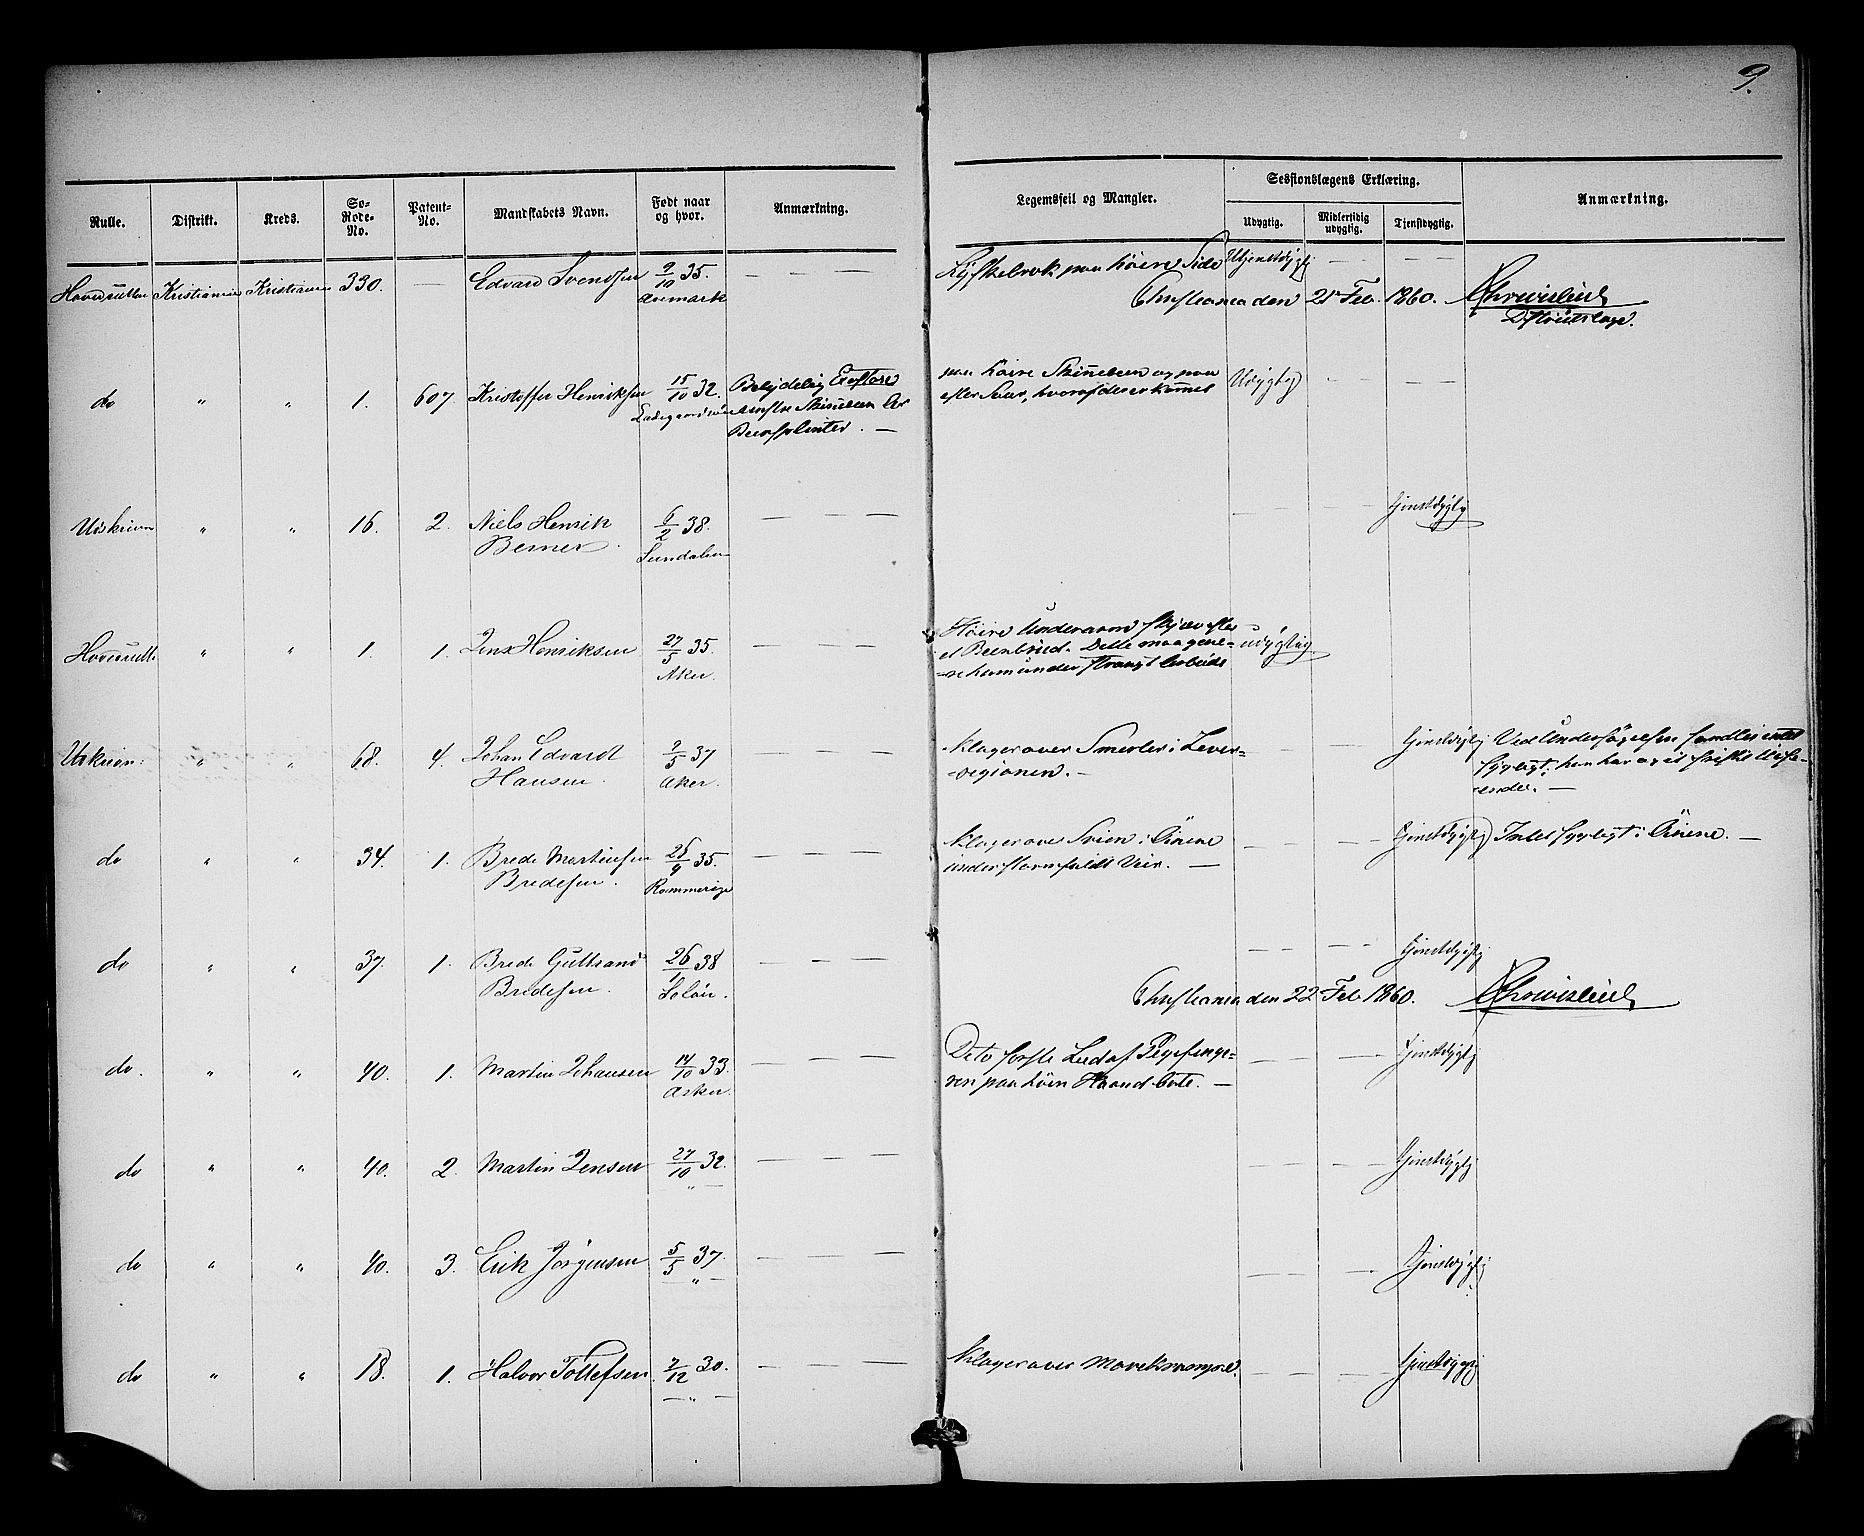 9.
Rulle. Distrikt. Kreds. Sø-Rode-No. Patent-No. Mandskabets Navn. Født naar og hvor. Anmærkning. Legemsfeil og Mangler. Sessionslægens Erklæring. Anmærkning.
Udygtig. Midlertidig udygtig. Tjenstdygtig.
Hovedrullen Kristiania Kristiania 330. — Edvard Svendsen 9/10 35. — — — Lyskebrok paa høire Side Utjenstdygtig — —
Aremark Christiania den 21 Feb. 1860.
Distriktslæge.
do " " 1. 607 Kristoffer Henriksen 15/10 32. Betydelig Exostose paa høire Skinneben og paa Udygtig — —
venstre Skinneben Ar efter Saar, hvoraf der er kommet
Beensplinter. —
Udskrivn " " 16. 2. Niels Henrik 6/2 38. — — — — — tjenstdygtig
Berner. Sundalen
Hovedrulle " " 1. 1. Jens Henriksen 27/5 35. — — — Høire Underarm skjæv efter udygtig. — —
Aker. et Beenbrud. Dette maa gene-
-re ham under strængt Arbeide
Udskrivn: " " 68. 4. Johan Edvardt 2/5 37 — — — Klager over Smerter i Lever- — — tjenstdygtig Ved Undersøgelsen fandtes intet
Hansen Aker. -regionen. — sygligt; han har og et friskt Udse-
-ende. —
do " " 34. 1. Brede Martinsen 25/9 35. — — — Klager over Svien i Øinene — — tjenstdygtig Intet sygligt i Øinene. —
Bredesen. Rommerige under stormfuldt Veir. —
do " " 37. 1. Brede Gulbrand 26/1 38 — — — — — tjenstdygtig
Bredesen. Soløir. Christiania den 22 Feb 1860.
do. " " 40. 1. Martin Johansen 14/10 33. — — — Det første Led af Pegefinge- — — tjenstdygtig
Asker. ren paa høire Haand borte. —
do " " 40. 2. Martin Jensen 27/10 32. — — — — — tjenstdygtig
" —
do " " 40. 3. Erik Jörgensen 5/5 37. — — — — — tjenstdygtig
" —
do " " 18. 1. Halvor Tollefsen 2/12 30. — — — Klager over Mavekrampe. — — tjenstdygtig
— " —